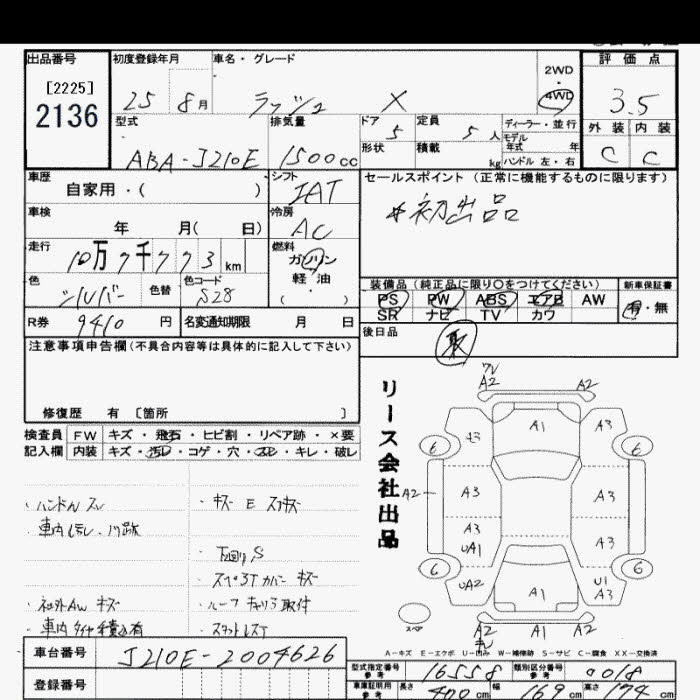 出品番号
[2225]
2136
初度登録年月
25 8月
車名・グレード
ラッシュ X
2WD
4WD
評価点
3.5
外装 内装
C C
型式
ABA-J210E
排気量
1500cc
ドア 5
形状
定員 5人
積載 kg
ディーラー・並行
モデル年式 年
ハンドル 左・右
車歴
自家用・( )
シフト
IAT
セールスポイント (正常に機能するものに限ります)
*初出品
車検
年 月( 日)
冷房
AC
走行
10万7千773km
燃料
ガソリン
軽・油
( ・ )
色
シルバー
色替
色コード
S28
装備品 (純正品に限り〇をつけてください)
PS PW ABS エアB AW
SR ナビ TV カワ
新車保証書
有・無
R券 9410円
名変通知期限 月 日
後日品
取
注意事項申告欄 (不具合内容等は具体的に記入して下さい)
修復歴 有 〔箇所 〕
検査員 FW キズ・飛石・ヒビ割・リペア跡・×要
記入欄 内装 キズ・汚れ・コゲ・穴・スレ・キレ・破レ
・ハンドルスレ
・キズ E スリキズ
・下回りS
・スペアTカバーキズ
・社外AWキズ
・ルーフキャリア取付
・車内タイヤ積込有
リース会社出品
A2
A2
A1
A3
A3
6
6
A2
A3
A3
A3
UA1
A3
6
6
UA2
A1
U1
A3
スペア
A2
A2
A-キズ E-エクボ U-凹み W-補修跡 S-サビ C-腐食 XX-交換済
車台番号 J210E-2004626
登録番号
型式指定番号 参考 16558
類別区分番号 参考 0018
車庫証明用 参考 長さ 400cm 幅 169cm 高さ 174cm